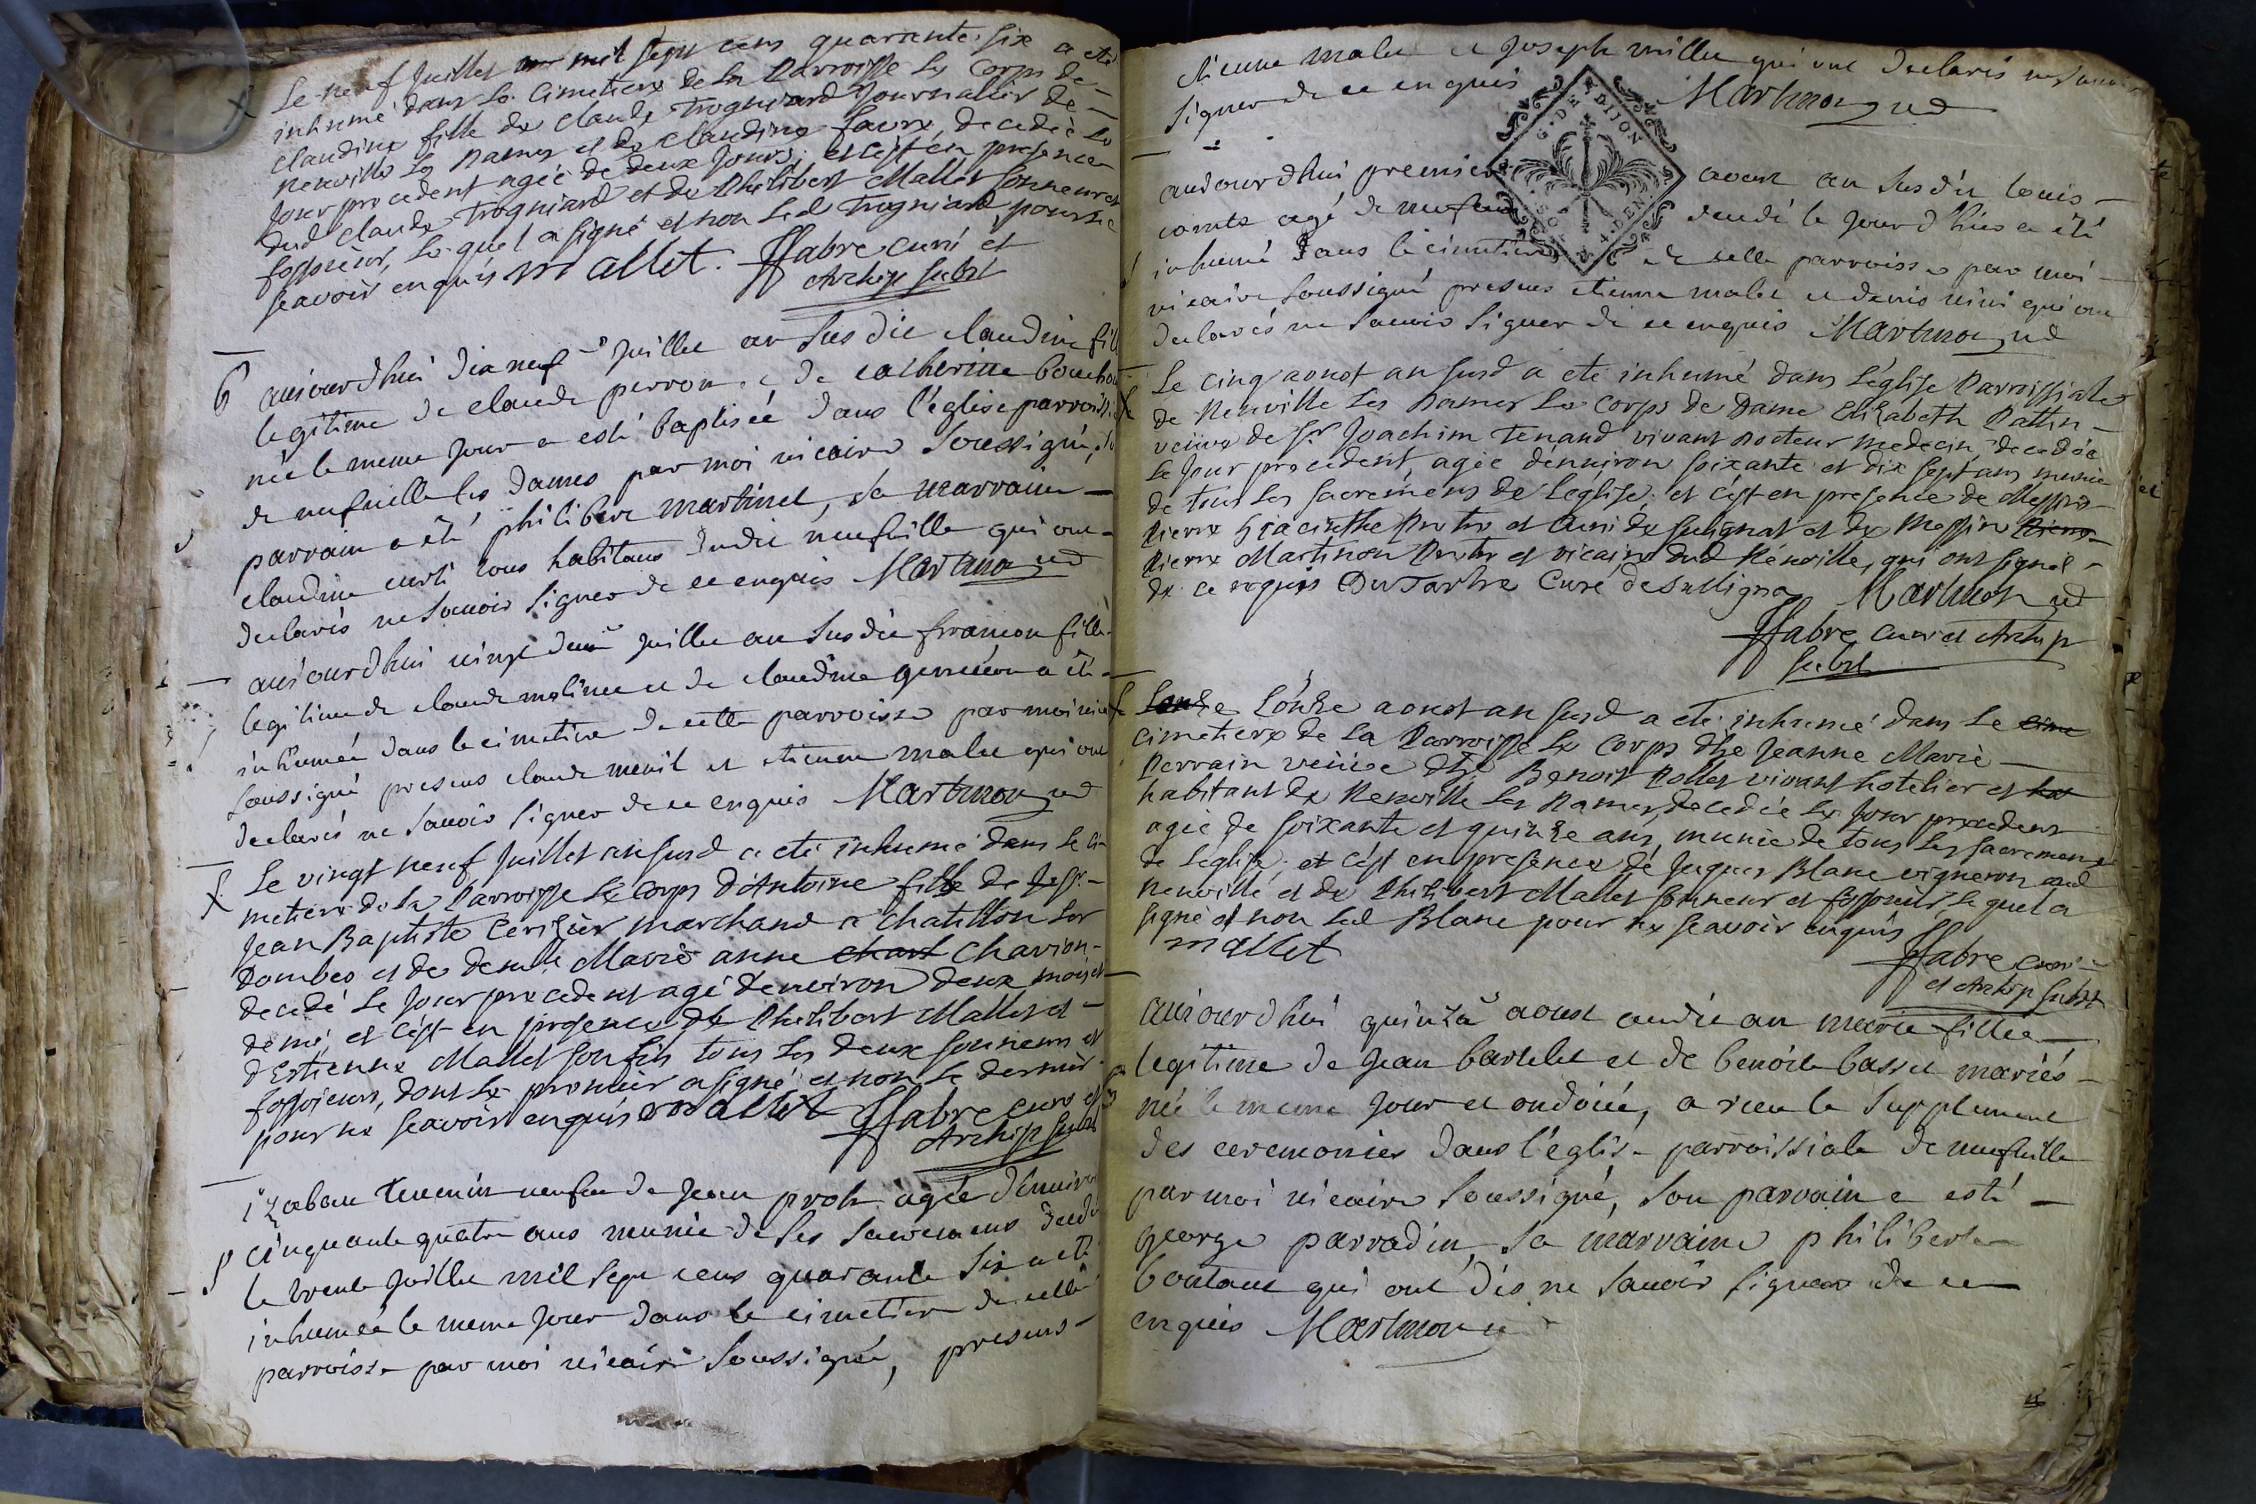 Le neuf Juillet mil sept cens quarante six a eté
inhumé dans Le Cimetiere de La Parroisse Le Corps de
Claudine fille de Claude Trogniard Journalier de
Neuville Les Dames et de Claudine favre, decedée Le
Jour precedent agée de deux Jours; et c'est en presence
dud Claude Trogniard et de Philibert Mallet sonneur et
fossoieur, Le quel a signé et non Led Trogniard pour ne
sçavoir enquis mallet. ffabre curé et
Archip subst
aujourdhui dixneuf Juillet an susdit claudine fille
legitime de claude perron et de catherine
née le meme jour a esté baptisée dans l'église parroissi
de neufville les dames par moi vicaire soussigné, so
parrain a été philibert martinet, sa marraine
claudine curti tous habitans dudit neufville qui ont
declarés ne savoir signer de ce enquis Martinon
aujourdhui vingt deux Juillet an susdit françon fille
legitime de claude molineu et de claudine a été
inhumée dans le cimetiere de cette parroisse par moi vicai
soussigné presens claude menil et etienne malet qui ont
declarés ne savoir signer de ce enquis Martinon
Le vingt neuf Juillet an susd a eté inhumé dans Le Ci
metiere de La Parroisse Le Corps d'Antoine fils de sr
Jean Baptiste Cerizier marchand a Chatillon Les
Dombes et de demlle Marie anne chart Charion
decedé Le Jour precedent agé d'environ deux mois et
demi, et c'est en presence de Philibert Mallet et
d'Estienne Mallet son fils tous Les deux sonneurs et
fossoieurs, dont Le premier a signé et non Le dernier
pour ne sçavoir enquis mallet ffabre curé et
Archip subst
izabau tevenin veufve de Jean prost agée d'environ
cinquante quatre ans munie de ses sacremens decedé
le trente juillet mil sept cens quarante six a été
inhumée le meme jour dans le cimetiere de cette
parroisse par moi vicaire soussigné, presens
etienne malet et Joseph millet qui ont declarés ne savoir
signer de ce enquis Martinon
G. DE DIJON
aujourdhui premier aoust an susdit louis
comte agé de neuf decedé le jour d'hier a été
inhumé dans le cimetiere de cette parroisse par moi
vicaire soussigné presens etienne malet et denis qui ont
declarés ne savoir signer de ce enquis Martinon
Le cinq aoust an susd a eté inhumé dans L'église Parroissiale
de Neuville Les Dames Le Corps de Dame Elizabeth Pattin
veuve de sr Joachim Tenand vivant docteur medecin, decedée
Le Jour precedent, agée d'environ soixante et dix sept ans munie
de tous Les sacremens de L'église et c'est en presence de Messire
Pierre hiacinthe Prtre et Curé de sulignat et de Messire Pierre
Pierre Martinon Prtre et vicaire dud Neuville, qui ont signé
de ce requis DuTartre Curé de Sulligna Martinon
ffabre curé et Archip
subst
Le onze aoust an susd a eté inhumé dans Le cime
cimetiere de La Parroisse Le Corps d'he Jeanne Marie
Perrain veuve d'he Benoit Pollet vivant hotelier et ha
habitant de Neuville Les Dames, decedée Le Jour precedent
agée de soixante et quinze ans, munie de tous Les sacremens
de L'église, et c'est en presence de Jaques Blanc vigneron aud
neuville et de Philibert Mallet sonneur et fossoieur, Le quel a
signé et non Led Blanc pour ne sçavoir enquis
mallet ffabre curé
et Archip subst
aujourdhui quinze aoust audit an marie fille
legitime de Jean bartelet et de benoite basset mariés
née le meme jour et ondoiée, a receu le supplement
des ceremonies dans l'église parroissiale de neufville
par moi vicaire soussigné, son parrain a esté
george parradin, sa marraine philiberte
boutant qui ont dis ne savoir signer de ce
enquis Martinon